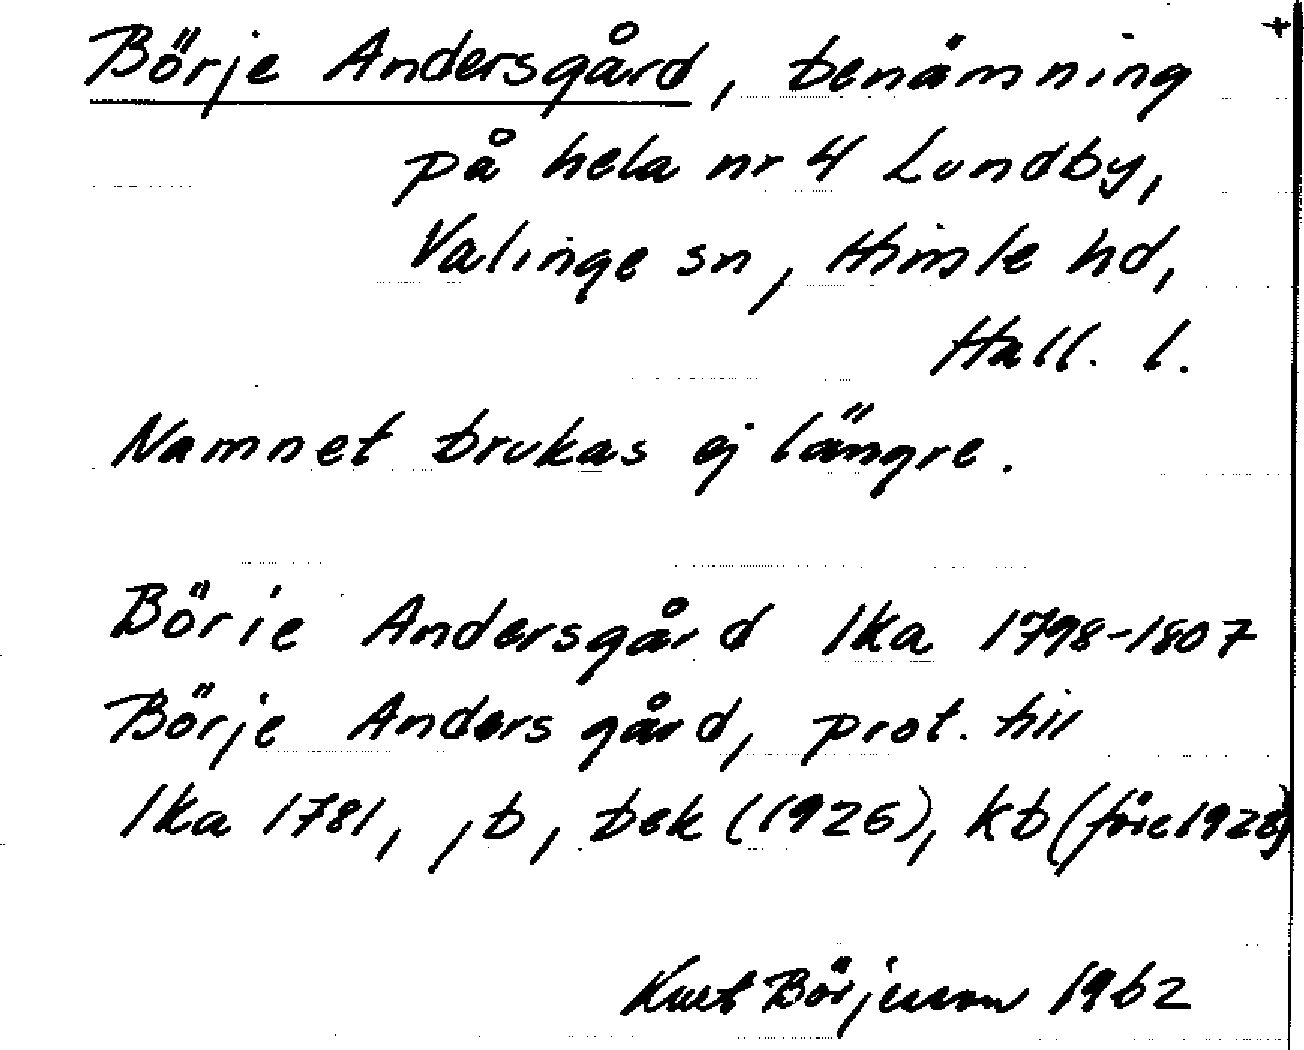 Börje Andersgård, benämning
på hela nr 4 Lundby,
Valinge sn, Himle hd,
Hall. l.
Namnet brukas ej längre.
Börie Andersgård lka 1798-1807
Börje Anders gård, prot. till
lka 1781, jb, bek (1926), kb (före 1928)
Kurt Börjesson 1962